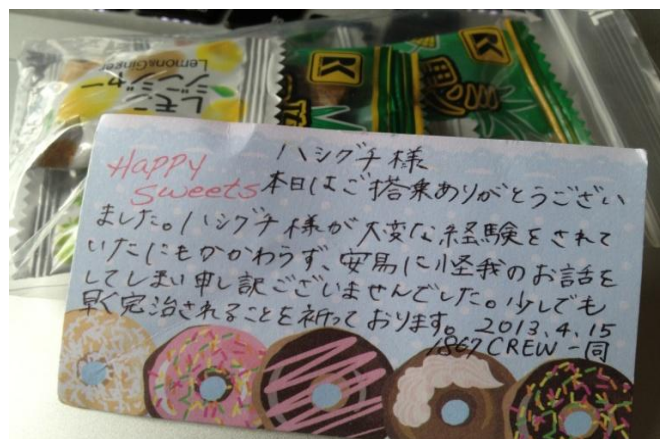 Lemon&Ginger
レモン
ジンジャー
K
K
Happy
Sweets
ハシグチ様
本日はご搭乗ありがとうござい
ました。ハシグチ様が大変な経験をされて
いたにもかかわらず、安易に怪我のお話を
してしまい申し訳ございませんでした。少しでも
早く完治されることを祈っております。2013.4.15
1867 CREW一同